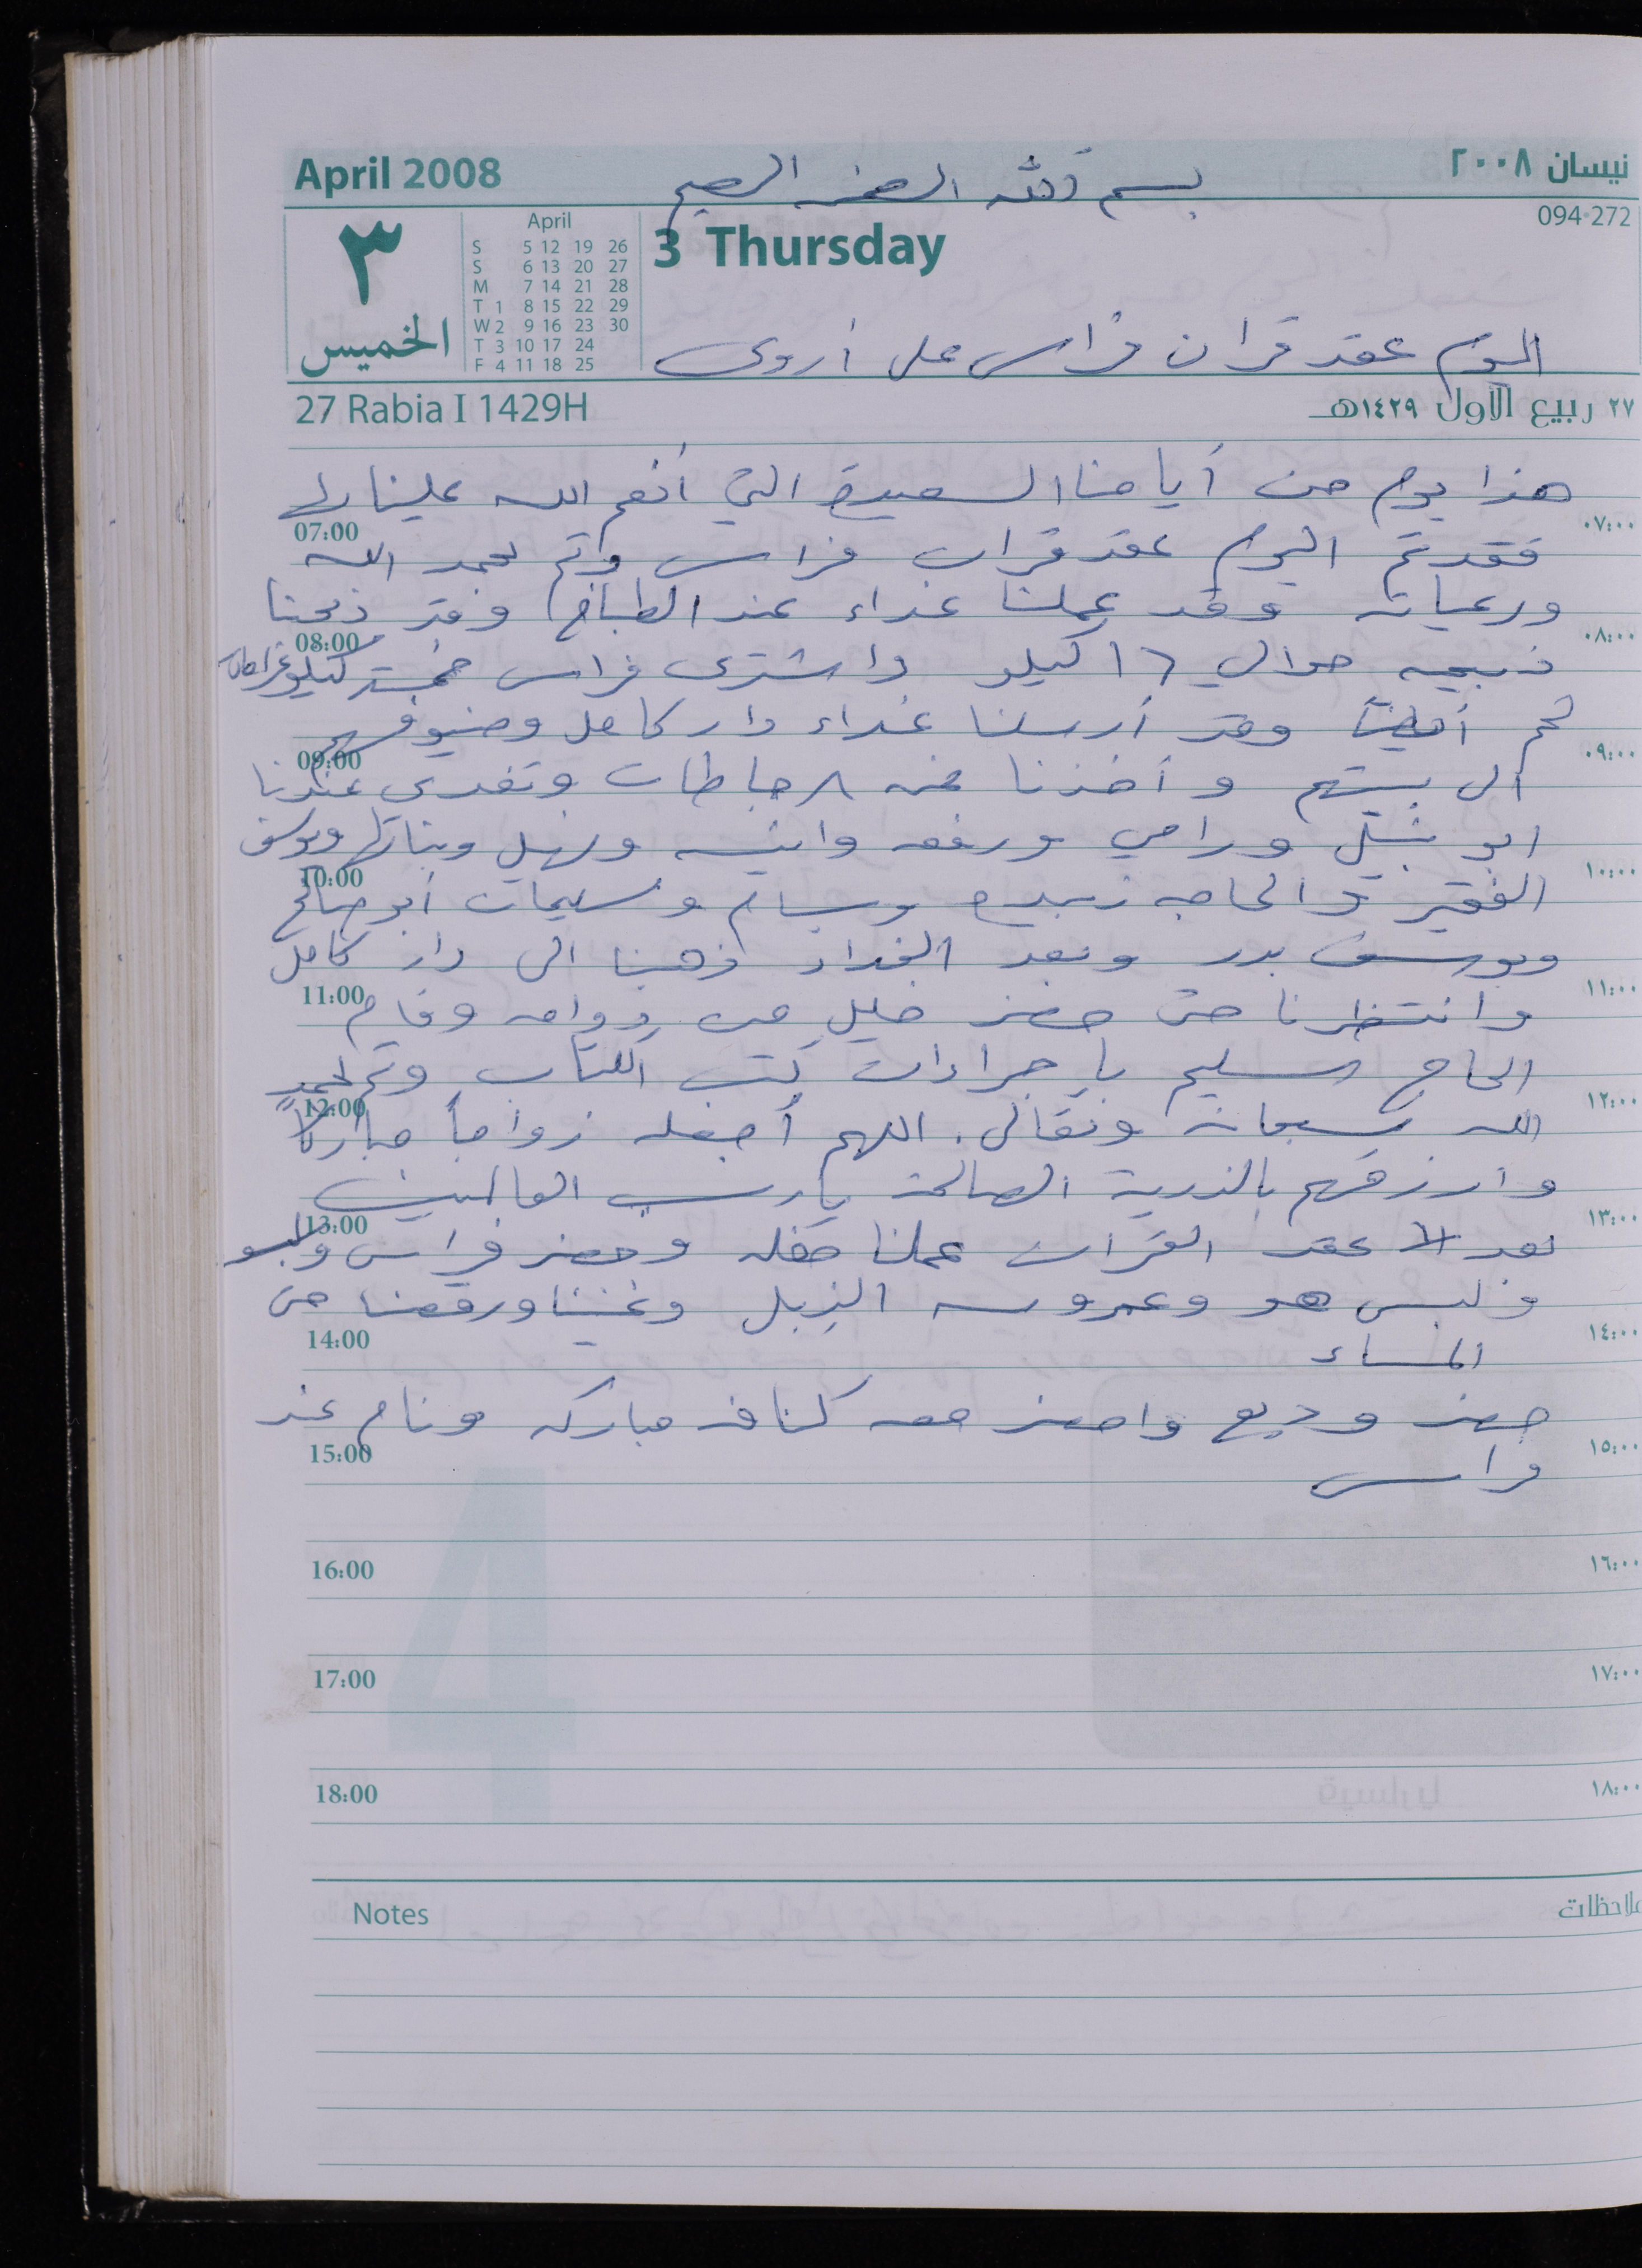 April 2008
بسم الله الرحمن الرحيم
نيسان ٢٠٠٨
094-272
٣
الخميس
April
S 5 12 19 26
S 6 13 20 27
M 7 14 21 28
T 1 8 15 22 29
W 2 9 16 23 30
T 3 10 17 24
F 4 11 18 25
3 Thursday
اليوم عقد قران فراس على أروى
27 Rabia I 1429H
٢٧ ربيع الأول ١٤٢٩هـ
هذا يوم من أيامنا السعيدة التي أنعم الله علينا بها
07:00 ٠٧:٠٠
فقد تم اليوم عقد قران فراس وتم بحمد الله
ورعايته وقد عملنا غداء عند الطباخ وقد ذبحنا
08:00 ٠٨:٠٠
ذبيحه حوالي ١٦ كيلو واشترى فراس خمسة كيلو غرامات
لحم أيضاً وقد أرسلنا غداء دار كامل وضيوفهم
09:00 ٠٩:٠٠
الى بيتهم وأخذنا نحن ٨ جاطات وتغدى عندنا
ابو نبيل ورامي ورفعه وانيسه ونهيل وبناتها ويوسف
10:00 ١٠:٠٠
الفقير والحاجه زبيده وبسام وسليمان أبو صالح
ويوسف بدر وبعد الغداء ذهبنا الى دار كامل
11:00 ١١:٠٠
وانتظرنا حتى حضر خليل من دوامه وقام
الحاج سليم بإجراءات كتب الكتاب وتم بحمد
12:00 ١٢:٠٠
الله سبحانه وتعالى. اللهم أجعله زواجاً مباركاً
وارزقهم بالذرية الصالحة يا رب العالمين
13:00 ١٣:٠٠
بعد عقد القران عملنا حفله وحضر فراس ولبسو
ولبس هو وعروسه الذبل وغنينا ورقصنا حتى
14:00 ١٤:٠٠
المساء
حضر وديع واحضر معه كنافه مباركه ونام عند
15:00 ١٥:٠٠
فراس
16:00 ١٦:٠٠
17:00 ١٧:٠٠
18:00 ١٨:٠٠
Notes
ملاحظات